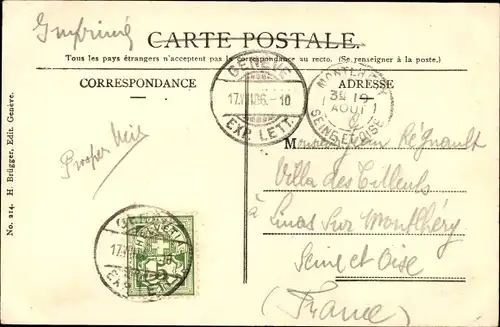 Imprimé
CARTE POSTALE.
Tous les pays étrangers n'acceptent pas la correspondance au recto. (Se renseigner à la poste.)
CORRESPONDANCE
ADRESSE
GENÈVE
17.VIII.06.-10
EXP. LETT.
3E 19
AOUT
SEINE ET OISE
Monsieur Jean Régnault
Villa des Tilleuls
à Linas sur Montlhéry
Seine et Oise
(France)
Prosper
GENÈVE
17.VIII
EXP. LETT.
HELVETIA
No. 214. H. Brügger, Edit. Genève.